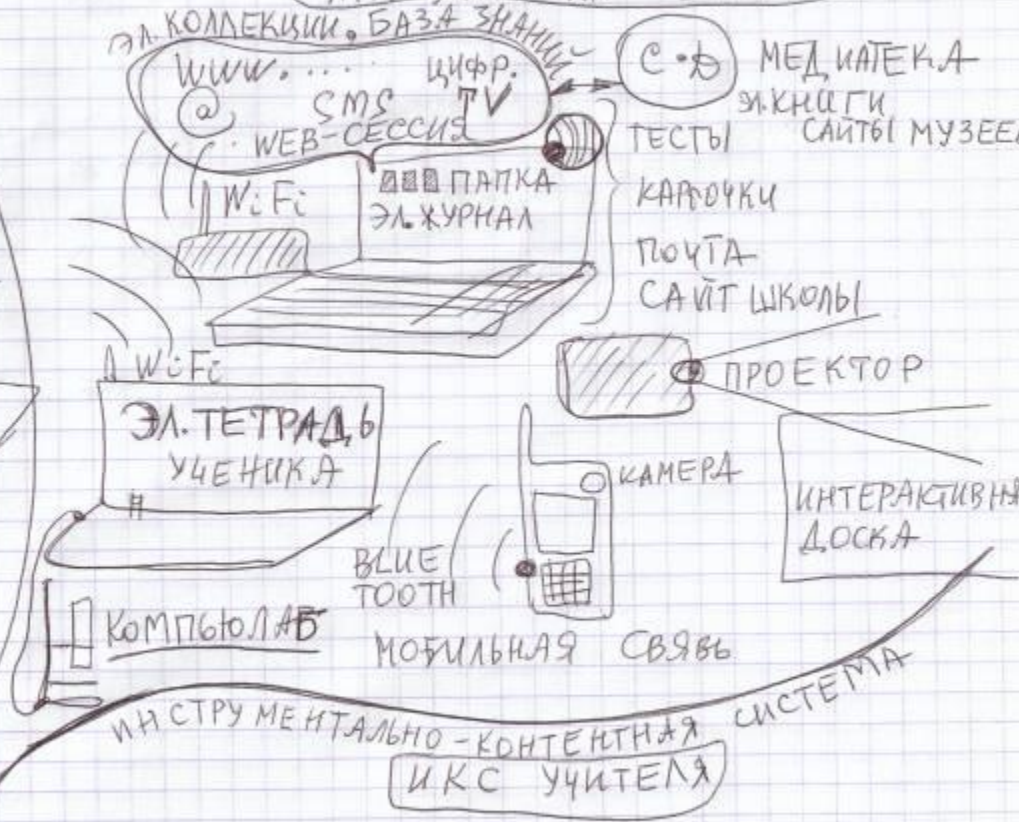 ЭЛ. КОЛЛЕКЦИИ. БАЗА ЗНАНИЙ
WWW. . . . .
ЦИФР.
TV
@
SMS
WEB-СЕССИЯ
С•D
МЕДИАТЕКА
ЭЛ.КНИГИ
САЙТЫ МУЗЕЕ
ТЕСТЫ
КАРТОЧКИ
ПОЧТА
САЙТ ШКОЛЫ
WiFi
ПАПКА
ЭЛ. ЖУРНАЛ
ПРОЕКТОР
WiFi
ЭЛ. ТЕТРАДЬ
УЧЕНИКА
КАМЕРА
ИНТЕРАКТИВНА
ДОСКА
BLUE
TOOTH
КОМПЬЮЛАБ
МОБИЛЬНАЯ СВЯЗЬ
ИНСТРУМЕНТАЛЬНО-КОНТЕНТНАЯ СИСТЕМА
ИКС УЧИТЕЛЯ